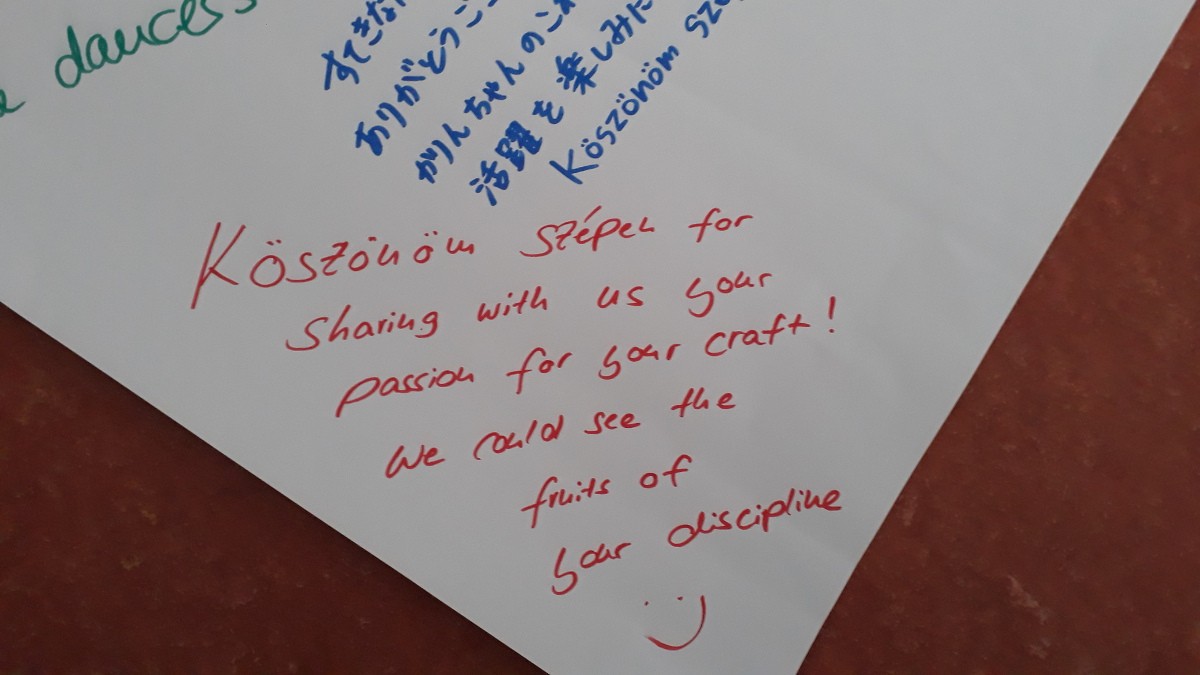 dances
すてきな
ありがとうご
がりんちゃんのこ
活躍を楽しみに
Köszönöm
Köszönöm szépen for
sharing with us your
passion for your craft!
We could see the
fruits of
your discipline